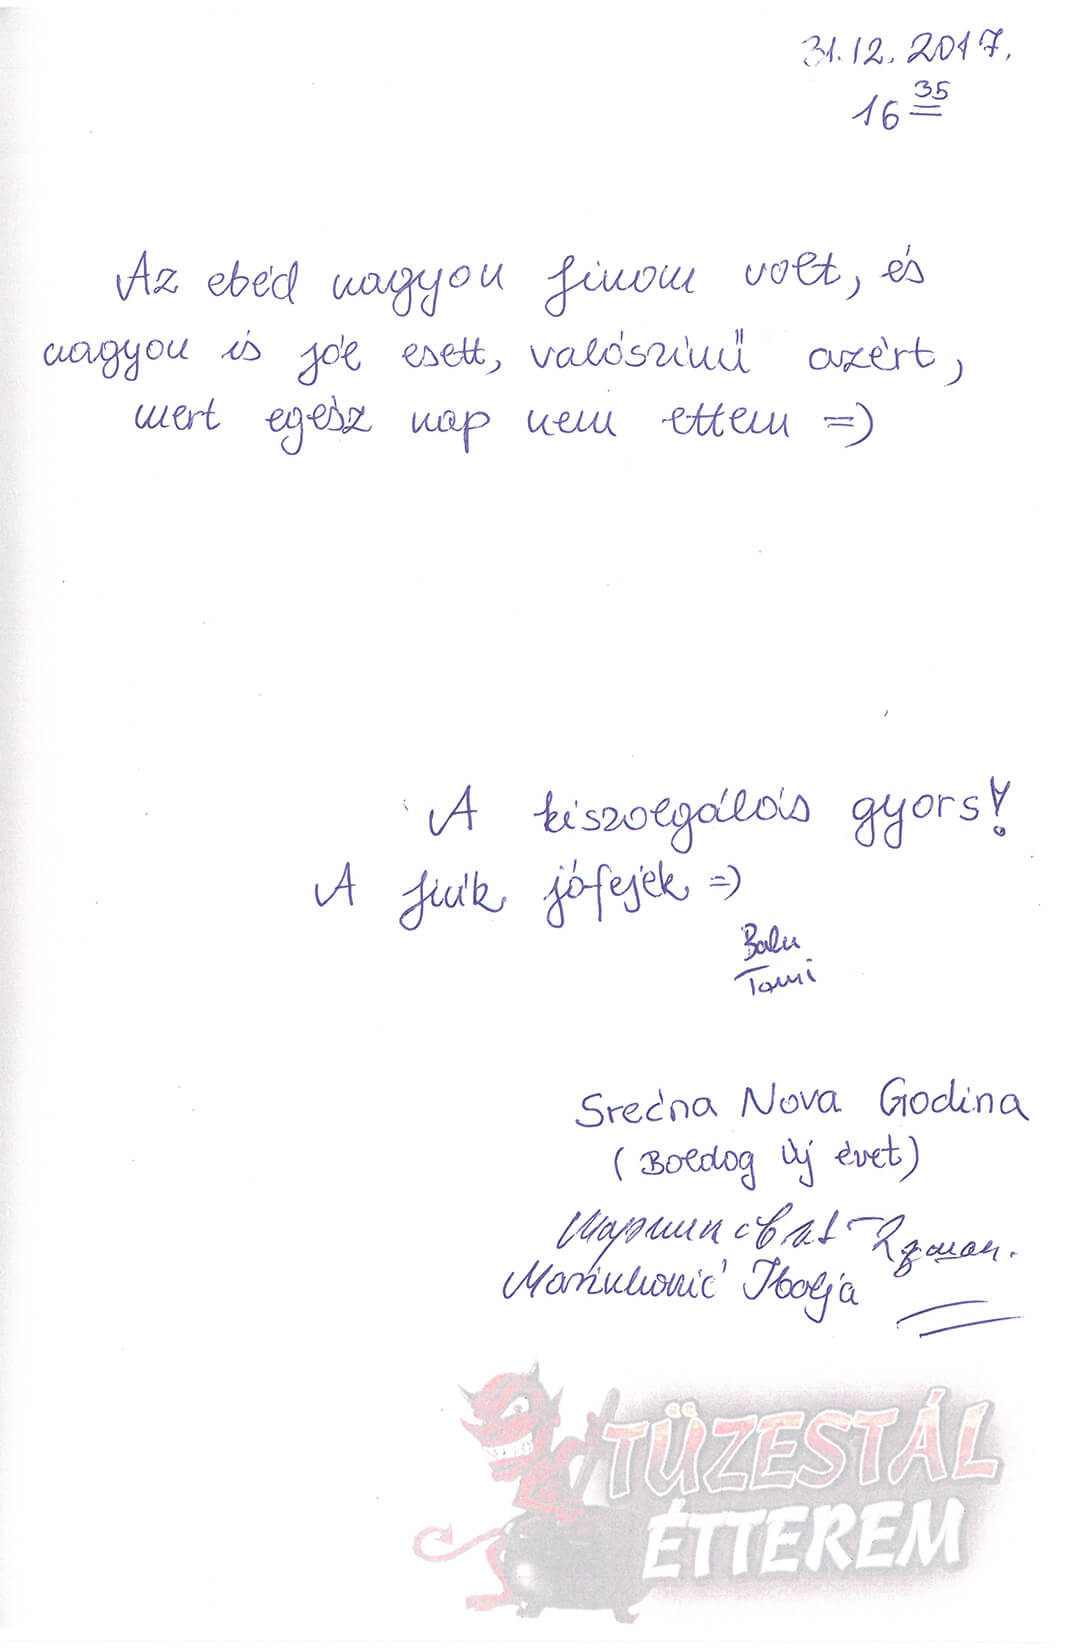 31.12.2017.
16 35
Az ebéd nagyon finom volt, és
nagyon is jól esett, valószinű azért,
mert egész nap nem ettem =)
A kiszolgálás gyors!
A fiúk jófejek =)
Balu
Tomi
Srećna Nova Godina
(Boldog Új évet)
Ibolja
TÜZESTÁL
ÉTTEREM